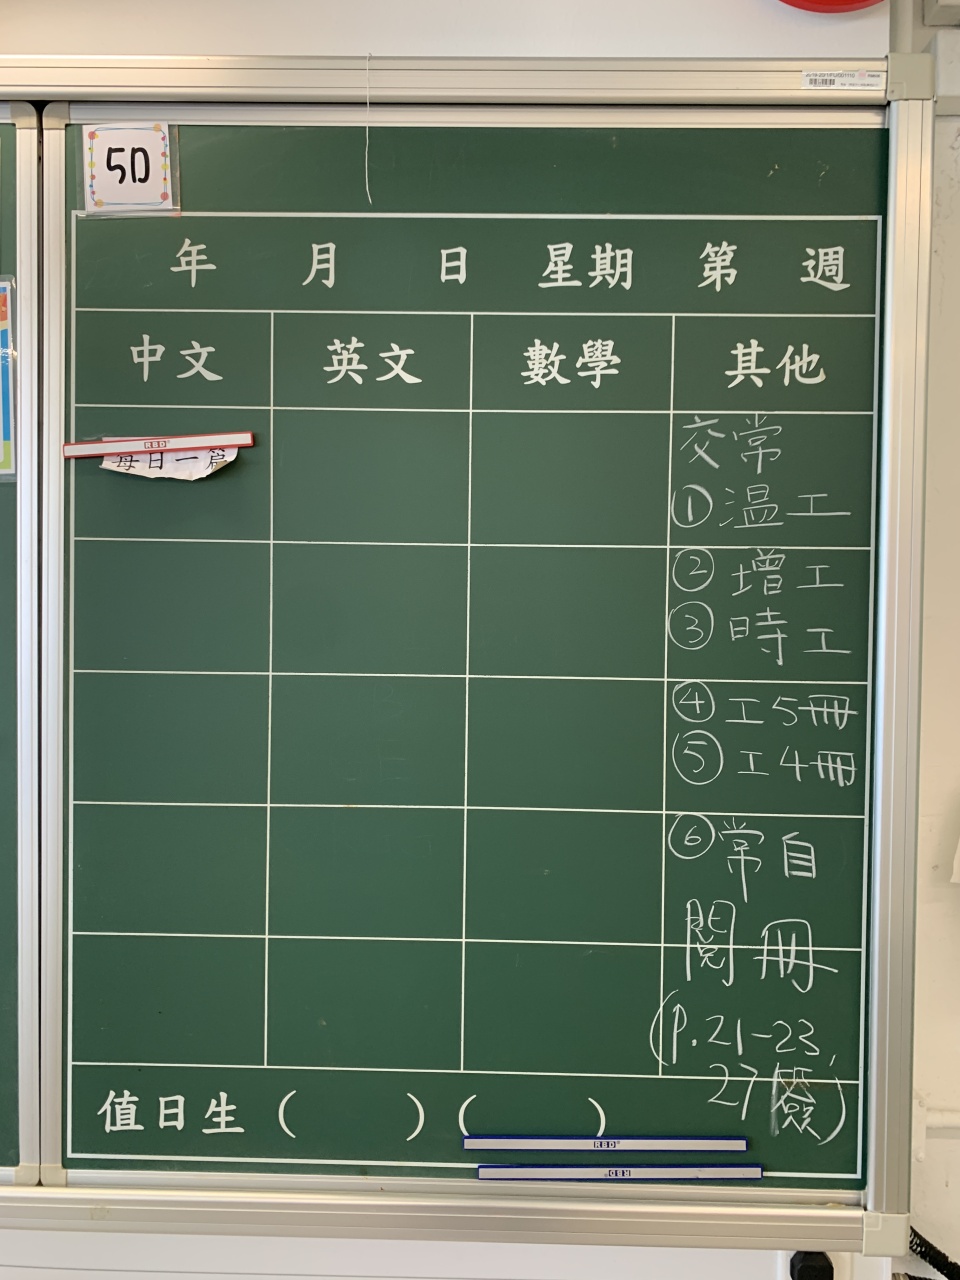 5D
年 月 日 星期 第 週
中文 英文 數學 其他
RBD
每日一篇
交常
① 温工
② 增工
③ 時工
④ 工5冊
⑤ 工4冊
⑥ 常自
閱冊
(P.21-23,
27簽)
值日生 ( ) ( )
RBD
RBD